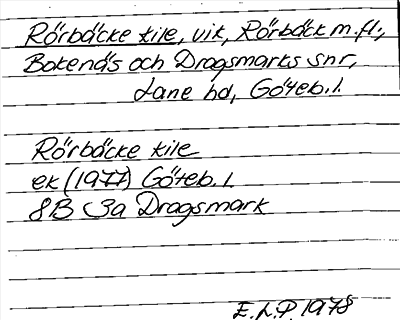 Rörbäcke kile, vik, Rörbäck m.fl.,
Bokenäs och Dragsmarks snr,
Lane hd, Göteb. l.
Rörbäcke kile
ek (1977) Göteb. l.
8B 3a Dragsmark
E.L.P 1978